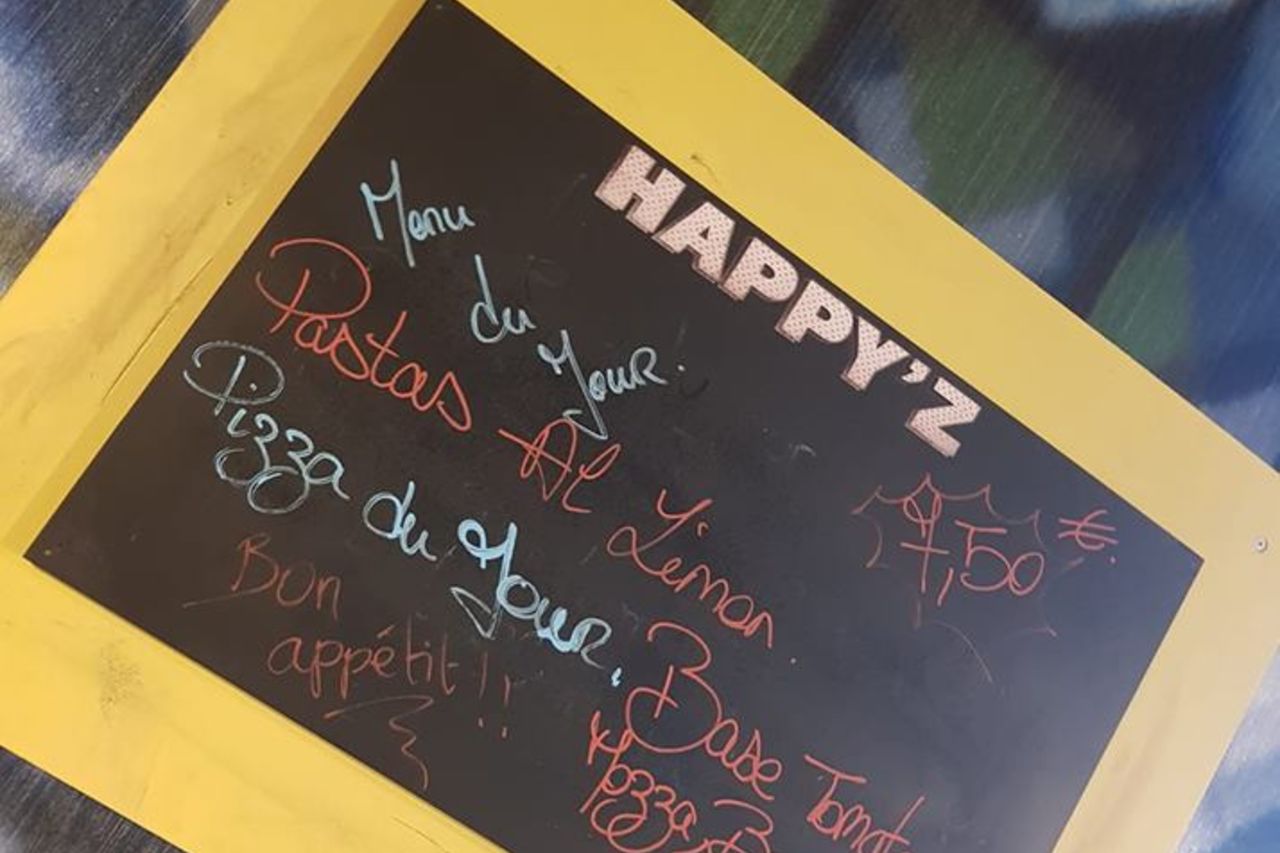 HAPPY'Z
Menu du Jour.
Pastas Al Limon.
9,50 €.
Pizza du Jour.
Base Tomat
Mozza, B
Bon
appétit !!